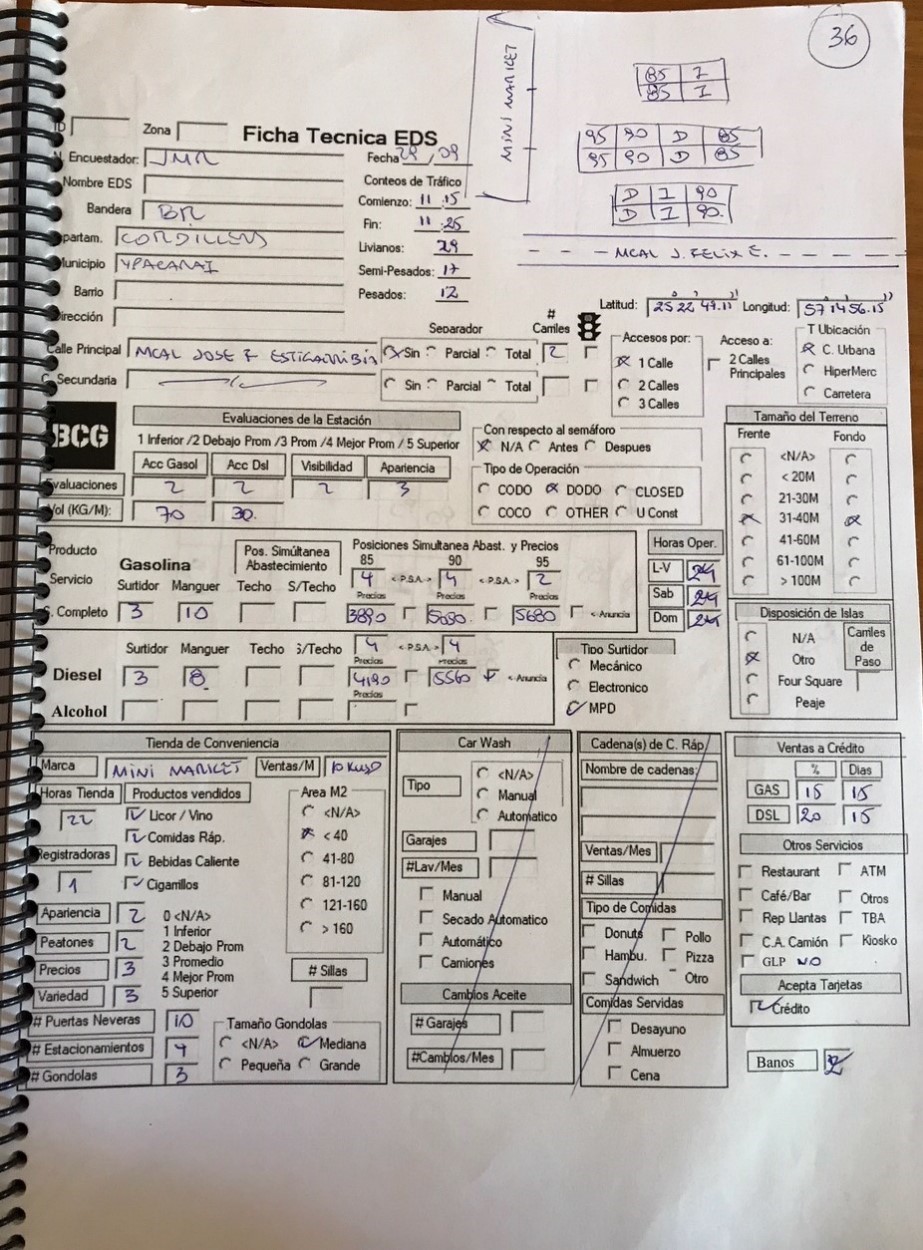 36
MINI MARKET
85 I
85 I
95 90 D 85
95 90 D 85
D I 90
D I 90.
- - - MCAL J. FELIX E. - - - -
ID Zona
Ficha Tecnica EDS
Encuestador: JMR Fecha 29/09
Nombre EDS Conteos de Tráfico
Bandera BR Comienzo: 11:15
Fin: 11:25
partam. CORDILLERA Livianos: 29
Municipio YPACARAI Semi-Pesados: 17
Barrio Pesados: 12
Dirección
Latitud: 25 22 47.11" Longitud: 57 14 56.15"
Separador # Carriles
Calle Principal MCAL JOSE F ESTIGARRIBIA Sin Parcial Total 2
Secundaria Sin Parcial Total
Accesos por:
1 Calle
2 Calles
3 Calles
Acceso a:
2 Calles Principales
T Ubicación
C. Urbana
HiperMerc
Carretera
BCG
Evaluaciones de la Estación
1 Inferior /2 Debajo Prom /3 Prom /4 Mejor Prom / 5 Superior
Acc Gasol Acc Dsl Visibilidad Apariencia
Evaluaciones 2 2 2 3
Vol (KG/M): 70 30.
Con respecto al semáforo
N/A Antes Despues
Tipo de Operación
CODO DODO CLOSED
COCO OTHER U Const
Tamaño del Terreno
Frente Fondo
<N/A>
< 20M
21-30M
31-40M
41-60M
61-100M
> 100M
Producto
Servicio
Completo
Gasolina
Pos. Simúltanea Abastecimiento
Posiciones Simultanea Abast. y Precios
85 90 95
4 < P.S.A. > 4 < P.S.A. > 2
Surtidor Manguer Techo S/Techo Precios Precios Precios
3 10 3890 5680 < Anuncia
Horas Oper.
L-V 24
Sab 24
Dom 24
Disposición de Islas
N/A
Otro
Four Square
Peaje
Carriles de Paso
Surtidor Manguer Techo S/Techo 4 < P.S.A. > 4
Precios Precios
Diesel 3 8 4190 5560 < Anuncia
Precios
Alcohol
Tipo Surtidor
Mecánico
Electronico
MPD
Tienda de Conveniencia
Marca MINI MARKET Ventas/M 10 KUSD
Horas Tienda Productos vendidos
22
Licor / Vino
Comidas Ráp.
Bebidas Caliente
Cigarrillos
Registradoras
1
Area M2
<N/A>
< 40
41-80
81-120
121-160
> 160
Apariencia 2
Peatones 2
Precios 3
Variedad 3
0 <N/A>
1 Inferior
2 Debajo Prom
3 Promedio
4 Mejor Prom
5 Superior
# Sillas
# Puertas Neveras 10
# Estacionamientos 4
# Gondolas 3
Tamaño Gondolas
<N/A> Mediana
Pequeña Grande
Car Wash
Tipo
<N/A>
Manual
Automatico
Garajes
#Lav/Mes
Manual
Secado Automatico
Automático
Camiones
Cambios Aceite
# Garajes
#Cambios/Mes
Cadena(s) de C. Ráp
Nombre de cadenas:
Ventas/Mes
# Sillas
Tipo de Comidas
Donuts Pollo
Hambu. Pizza
Sandwich Otro
Comidas Servidas
Desayuno
Almuerzo
Cena
Ventas a Crédito
% Dias
GAS 15 15
DSL 20 15
Otros Servicios
Restaurant ATM
Café/Bar Otros
Rep Llantas TBA
C.A. Camión Kiosko
GLP NO
Acepta Tarjetas
Crédito
Banos